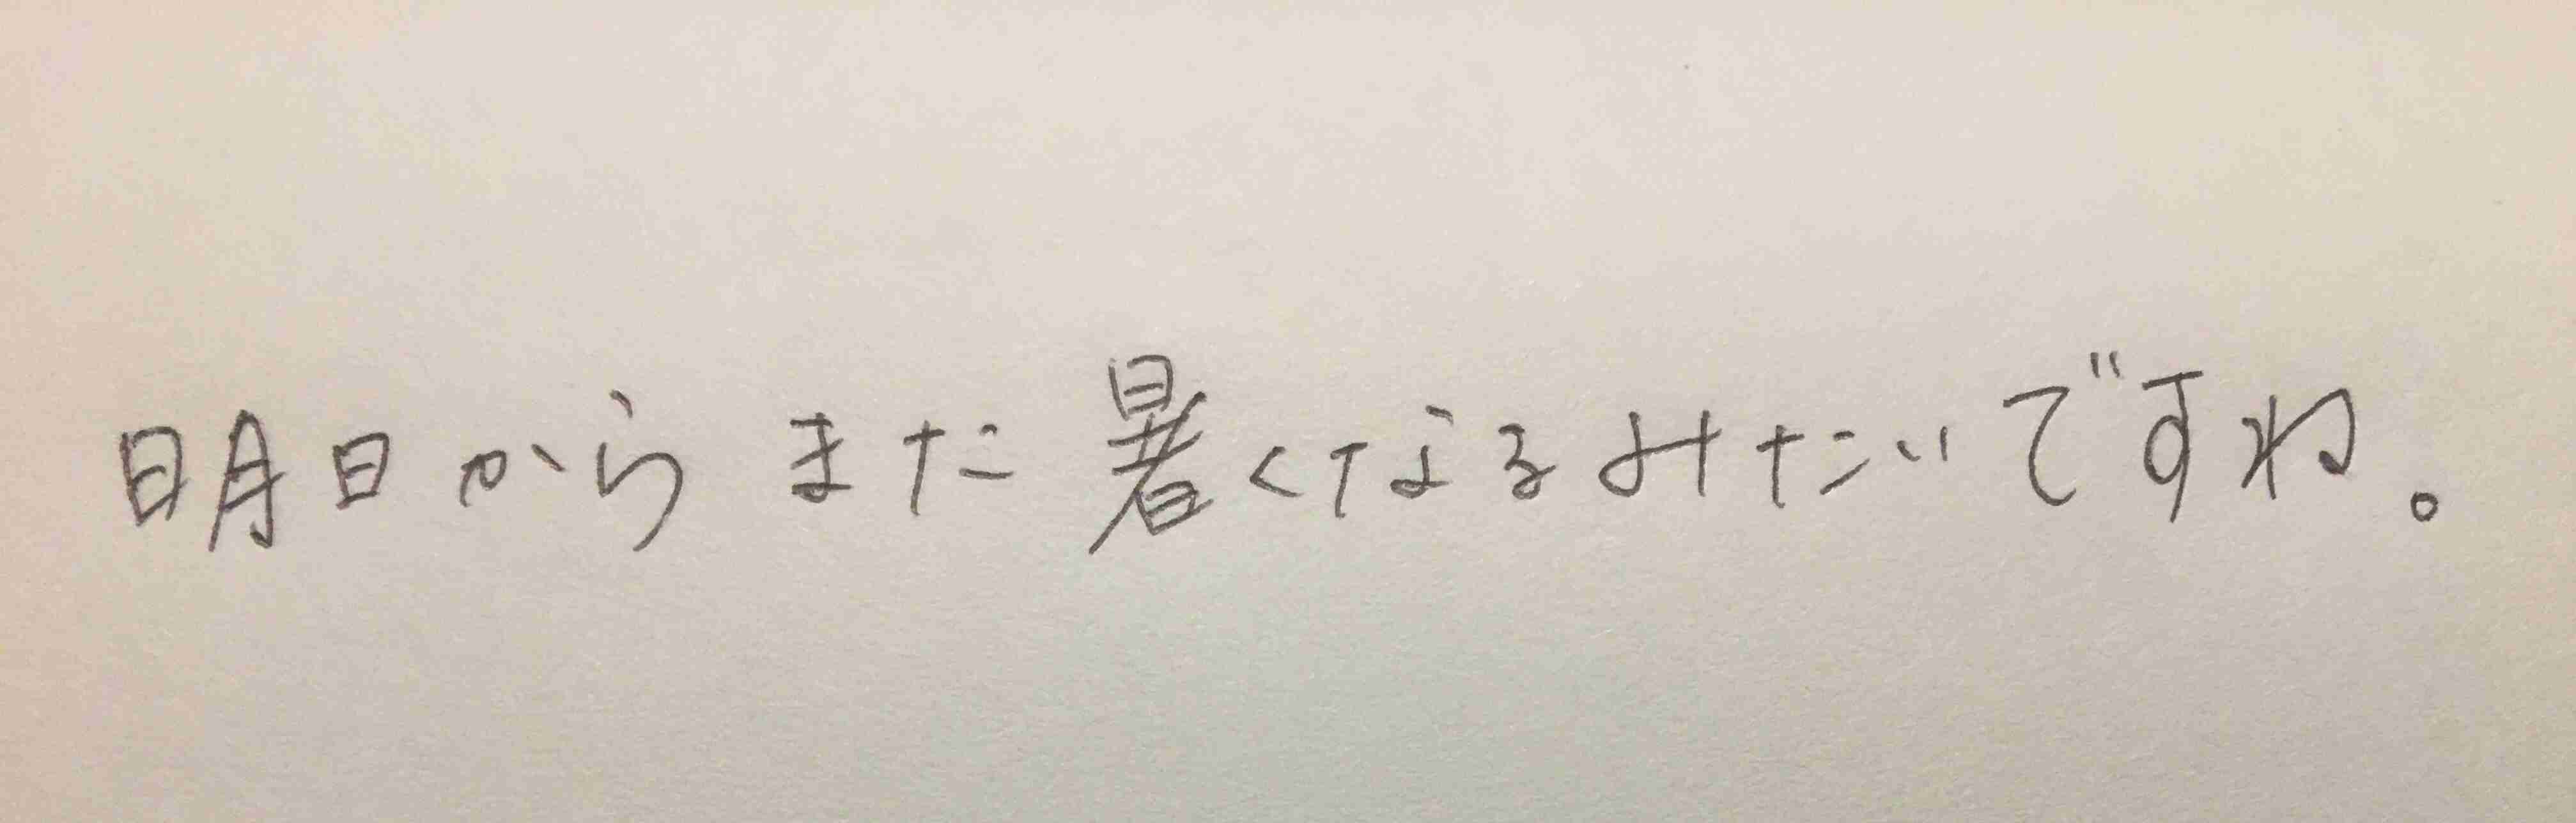 明日からまた暑くなるみたいですね。